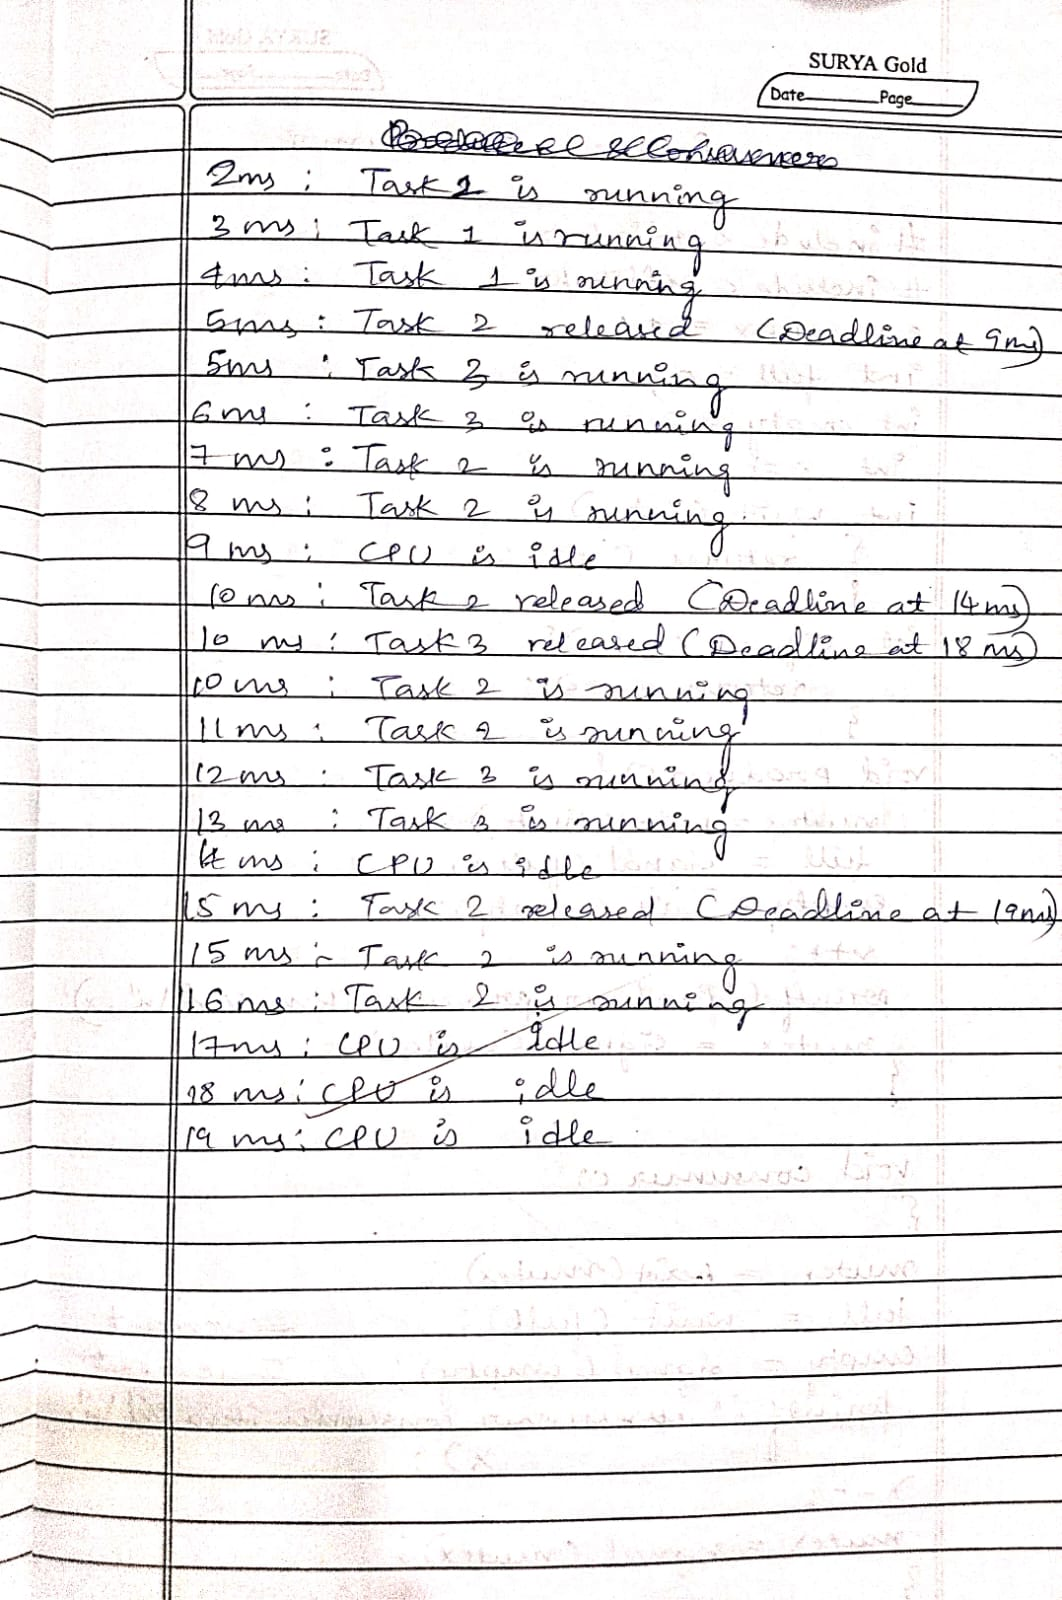 SURYA Gold
Date Page
2ms : Task 1 is running
3 ms : Task 1 is running
4ms : Task 1 is running
5ms : Task 2 released (Deadline at 9ms)
5ms : Task 3 is running
6ms : Task 3 is running
7 ms : Task 2 is running
8 ms : Task 2 is running.
9 ms : CPU is idle
10 ms : Task 2 released (Deadline at 14ms)
10 ms : Task 3 released (Deadline at 18 ms)
10 ms : Task 2 is running
11 ms : Task 2 is running
12 ms : Task 3 is running
13 ms : Task 3 is running
14 ms : CPU is idle
15 ms : Task 2 released (Deadline at 19ms)
15 ms - Task 2 is running
16 ms : Task 2 is running
17ms : CPU is idle
18 ms : CPU is idle
19 ms : CPU is idle